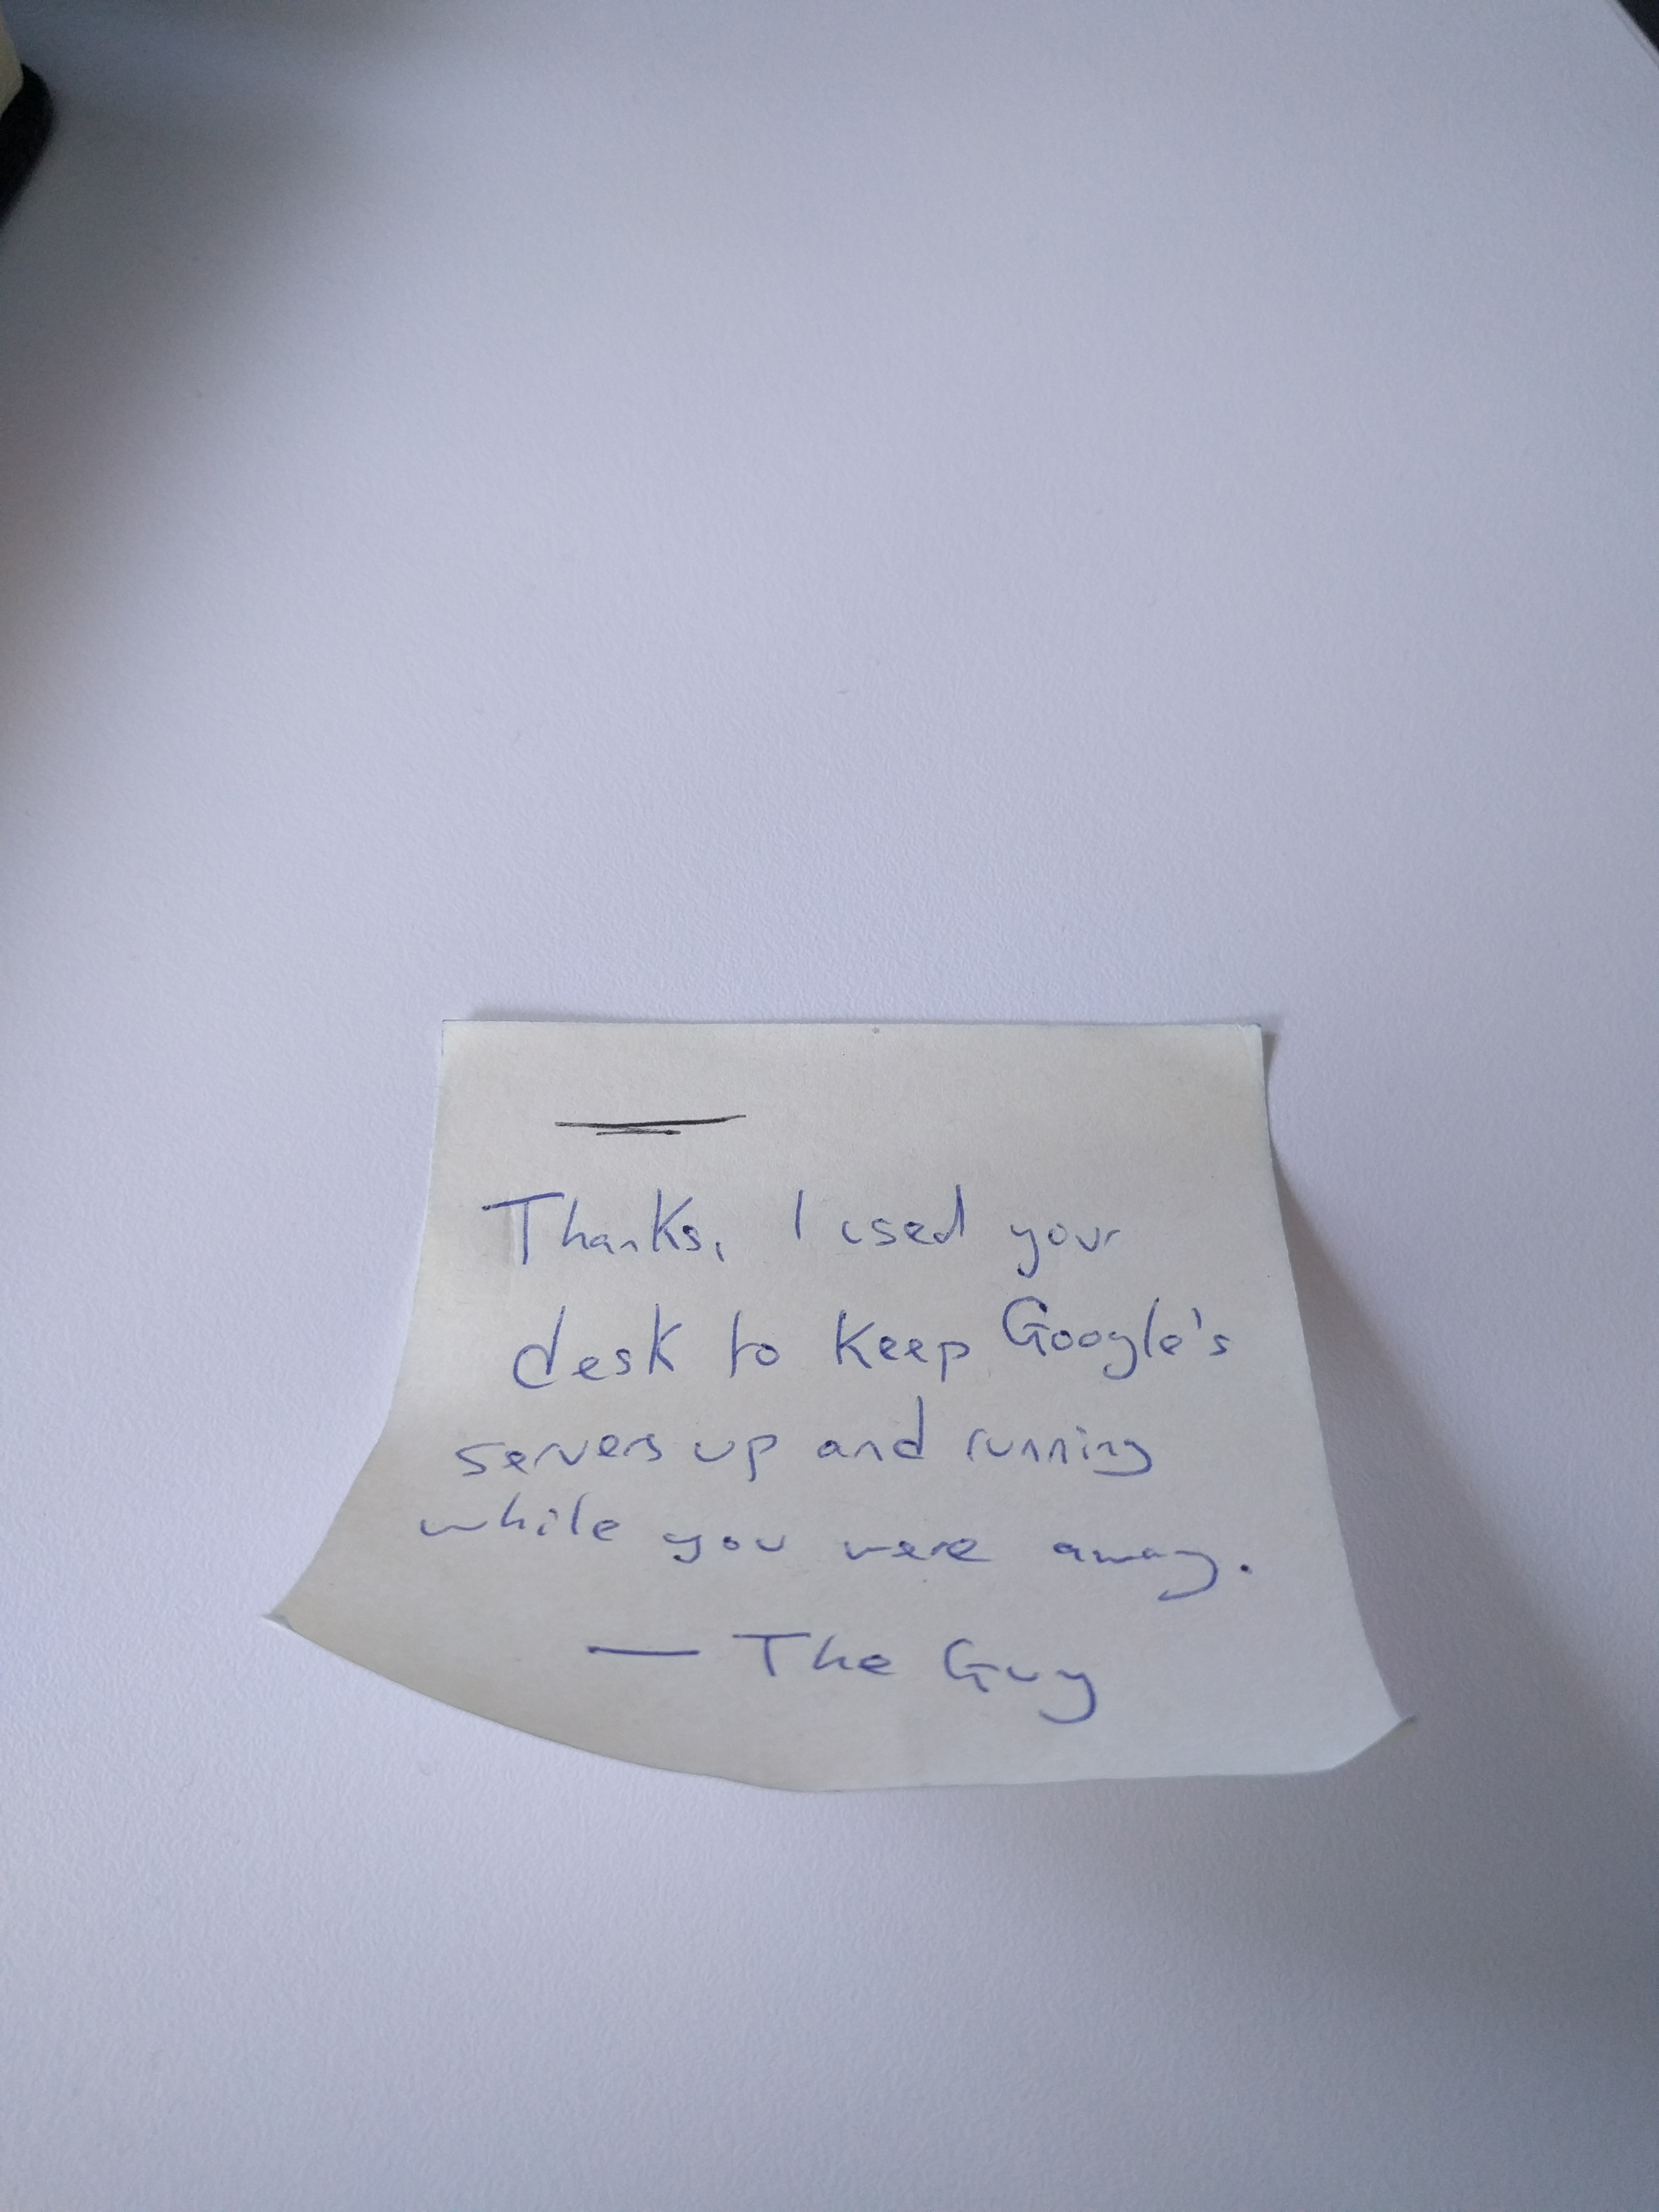 Thanks, I used your
desk to keep Google's
servers up and running
while you were away.
— The Guy